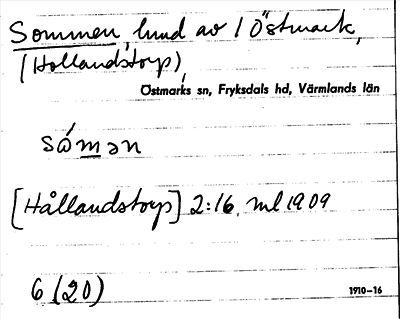 Sommen, lund av 1 Östmark,
(Hollandstorp)
Östmarks sn, Fryksdals hd, Värmlands län
såmən
[Hållandstorp] 2:16, ml 1909
6 (20)
1910-16